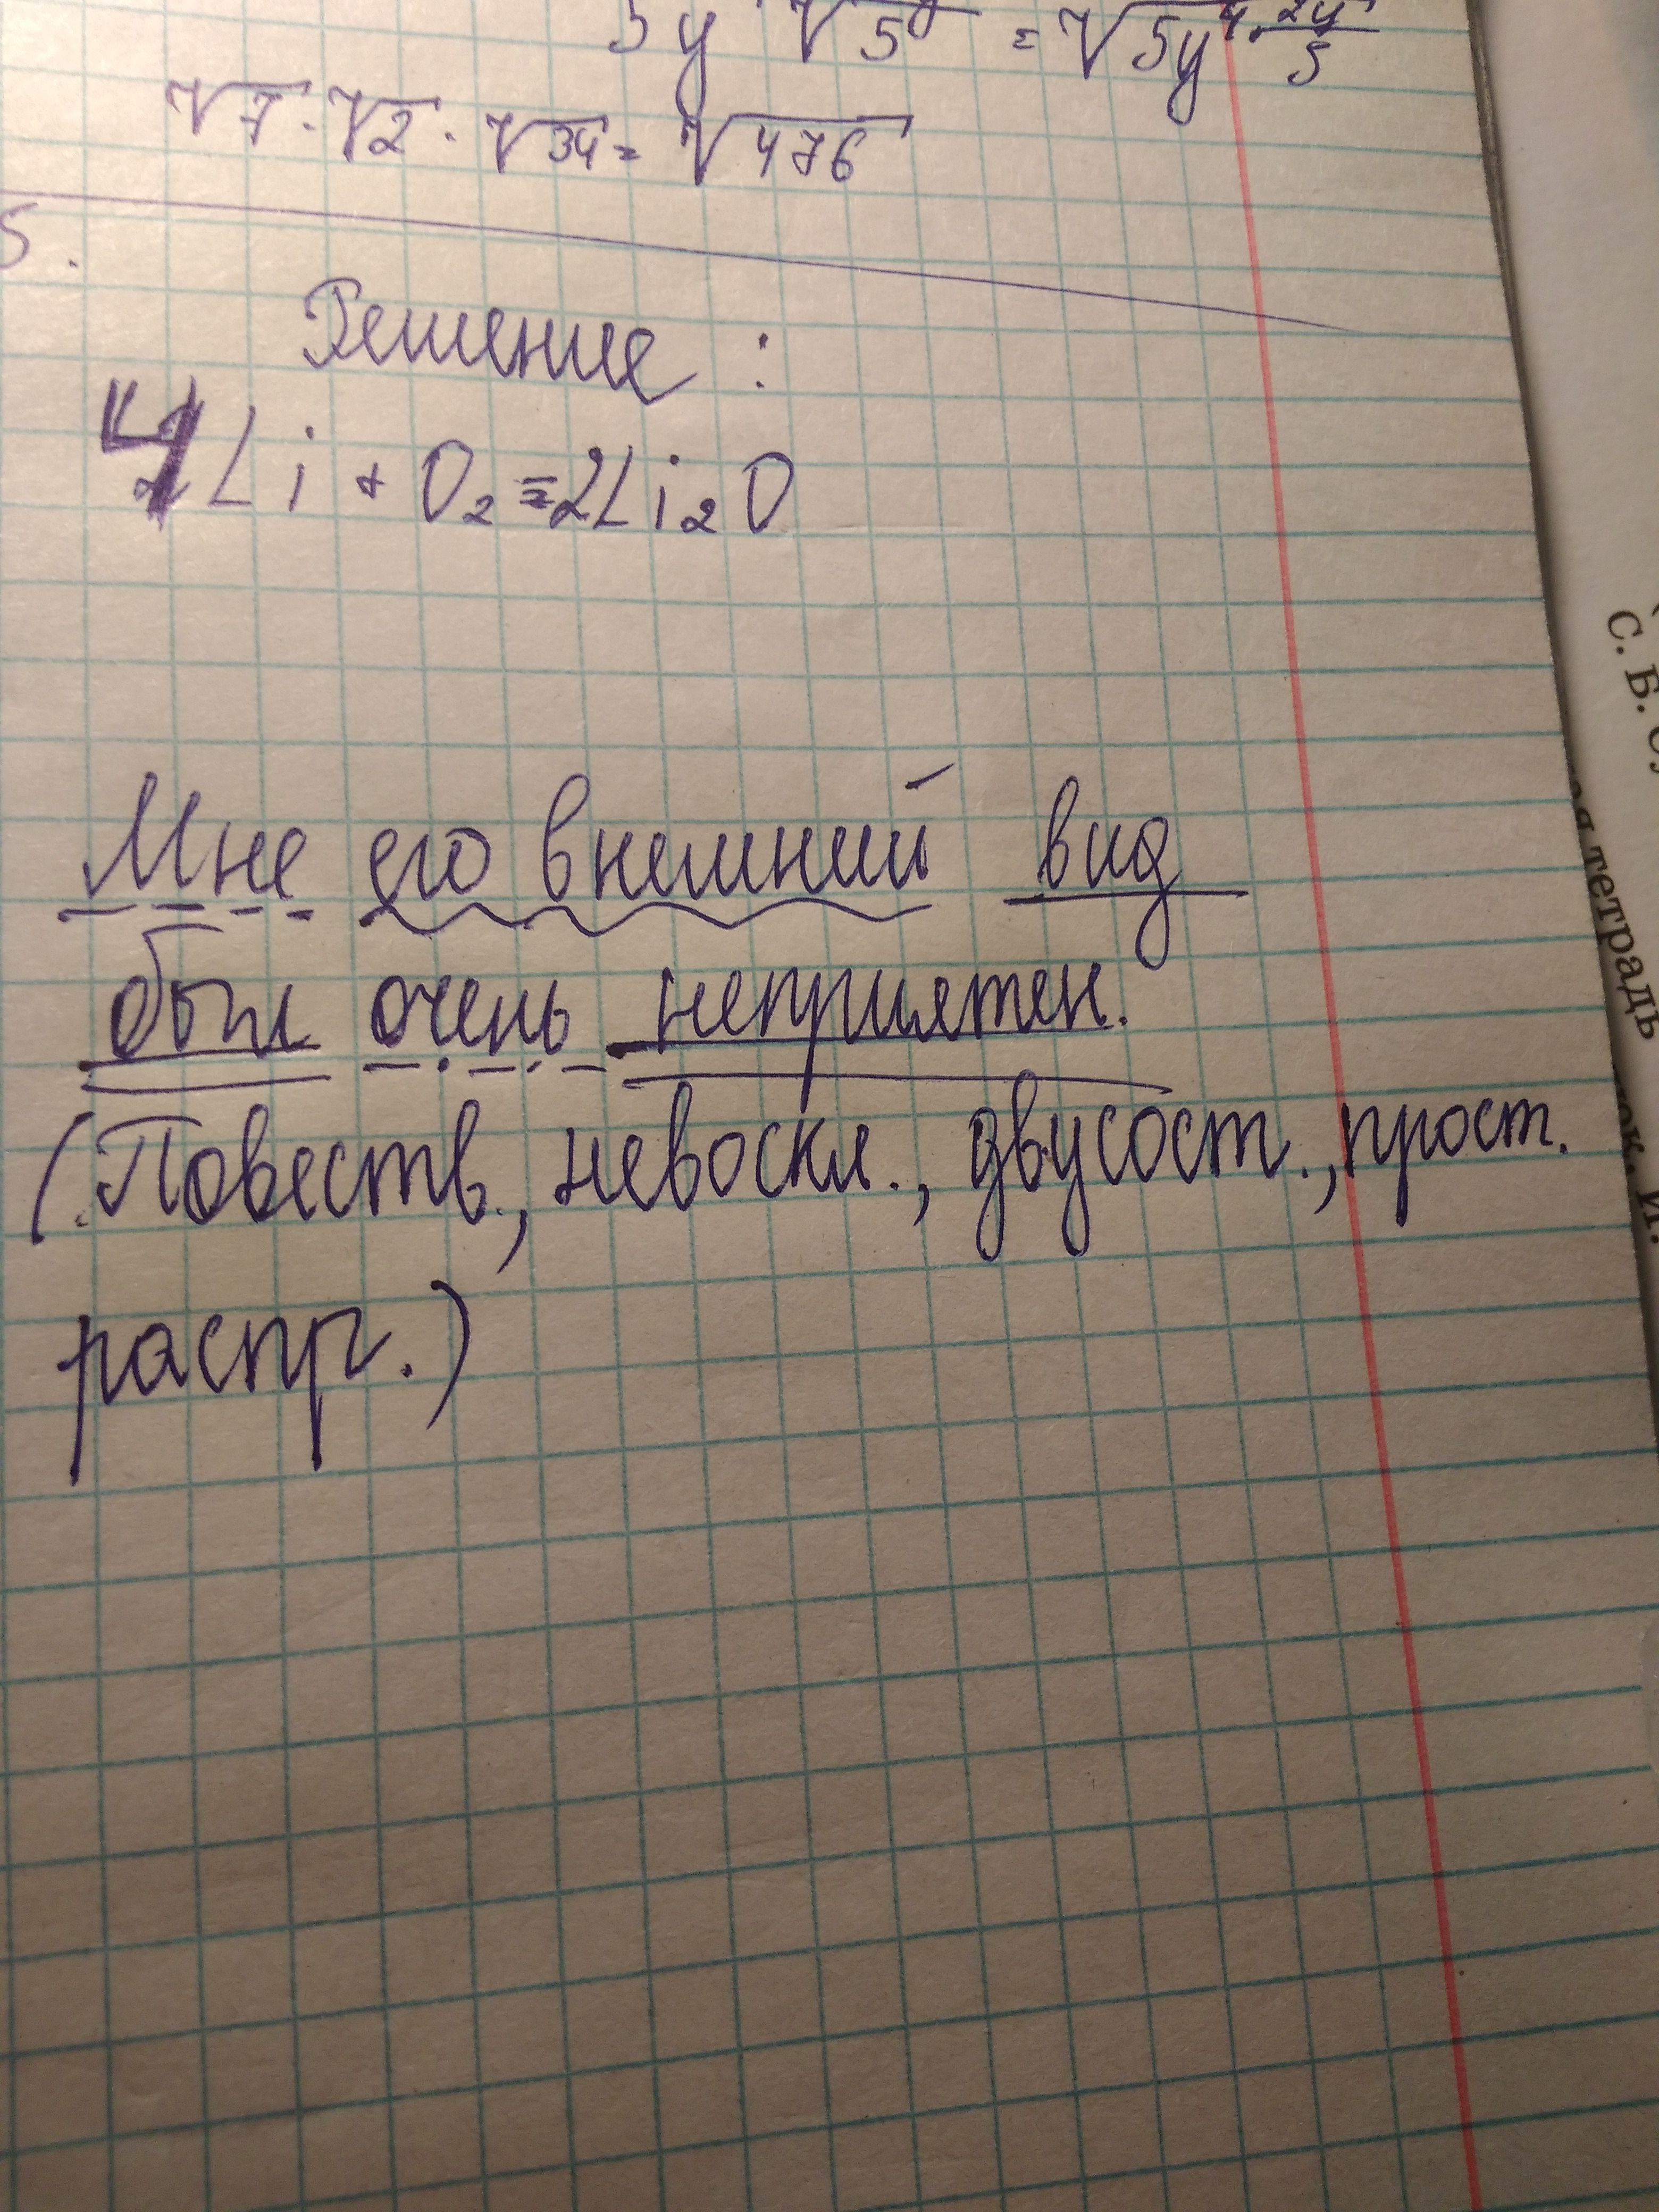 5y √5 = √5y⁴·2y/5
√7 · √2 · √34 = √476
5.
Решение :
4Li + O₂ = 2Li₂O
Мне его внешний вид
был очень неприятен.
(Повеств., невоскл., двусост., прост.
распр.)
С. Б.
тетрадь